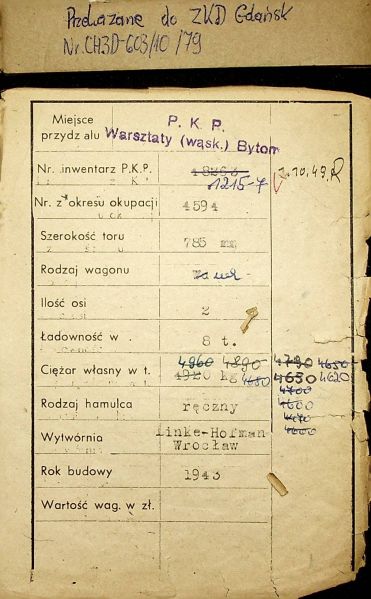 Przekazane do ZKD Gdańsk
Nr. CH3D-603/10/79
Miejsce przydz ału P. K. P. Warsztaty (wąsk.) Bytom
Nr. inwentarz P.K.P. 1215-7 1.10.49.R
Nr. z okresu okupacji 4594
Szerokość toru 785 mm
Rodzaj wagonu
Ilość osi 2
Ładowność w . 8 t.
Ciężar własny w t. 4960 4890 4790 4650
1920 kg 4680 4650 4620
4700
4600
Rodzaj hamulca ręczny
Wytwórnia Linke-Hofman Wrocław
Rok budowy 1943
Wartość wag. w zł.